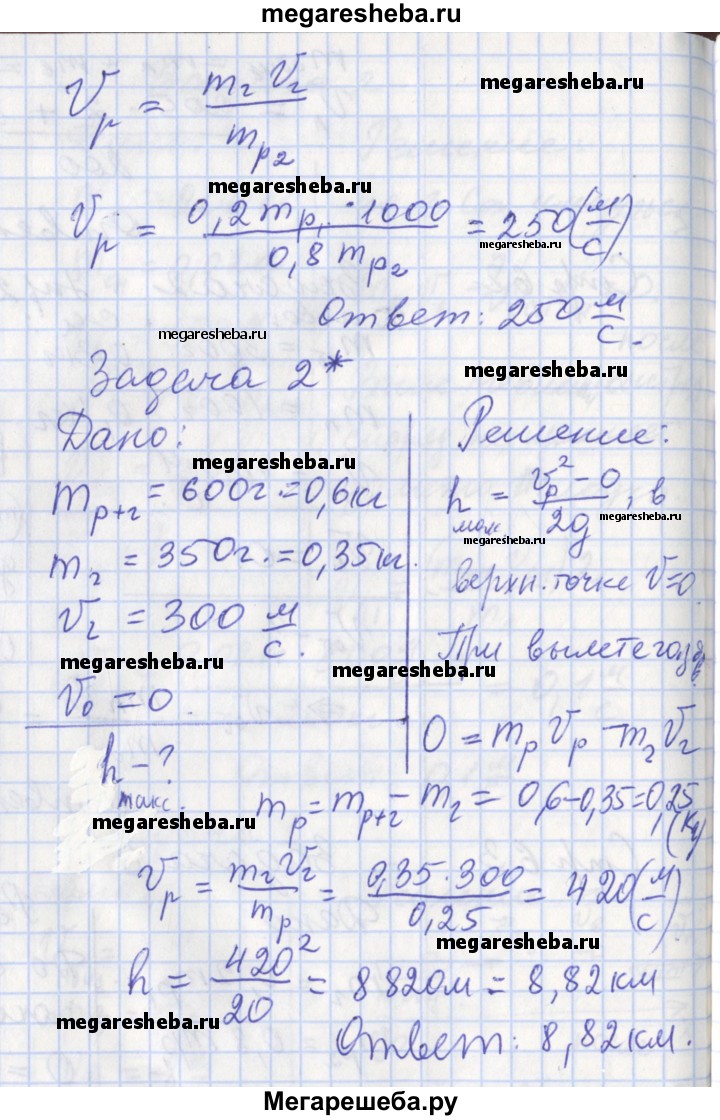 megaresheba.ru
Vр = mг Vг / mр2
megaresheba.ru
megaresheba.ru
Vр = 0,2 mр1 · 1000 / 0,8 mр2 = 250 (м/с).
megaresheba.ru
Ответ: 250 м/с.
megaresheba.ru
Задача 2*
megaresheba.ru
Дано:
megaresheba.ru
mр+г = 600г. = 0,6кг
mг = 350г. = 0,35кг.
vг = 300 м/с.
megaresheba.ru
V₀ = 0.
h макс. - ?
Решение:
h мах = vр² - 0 / 2g, в
megaresheba.ru
megaresheba.ru
верхн. точке V=0.
При вылете газов.
megaresheba.ru
0 = mр Vр - mг Vг
mр = mр+г - mг = 0,6-0,35=0,25 (кг)
megaresheba.ru
Vр = mг Vг / mр = 0,35·300 / 0,25 = 420 (м/с).
megaresheba.ru
h = 420² / 20 = 8820м = 8,82 км
megaresheba.ru
Ответ: 8,82 км.
Мегарешеба.ру